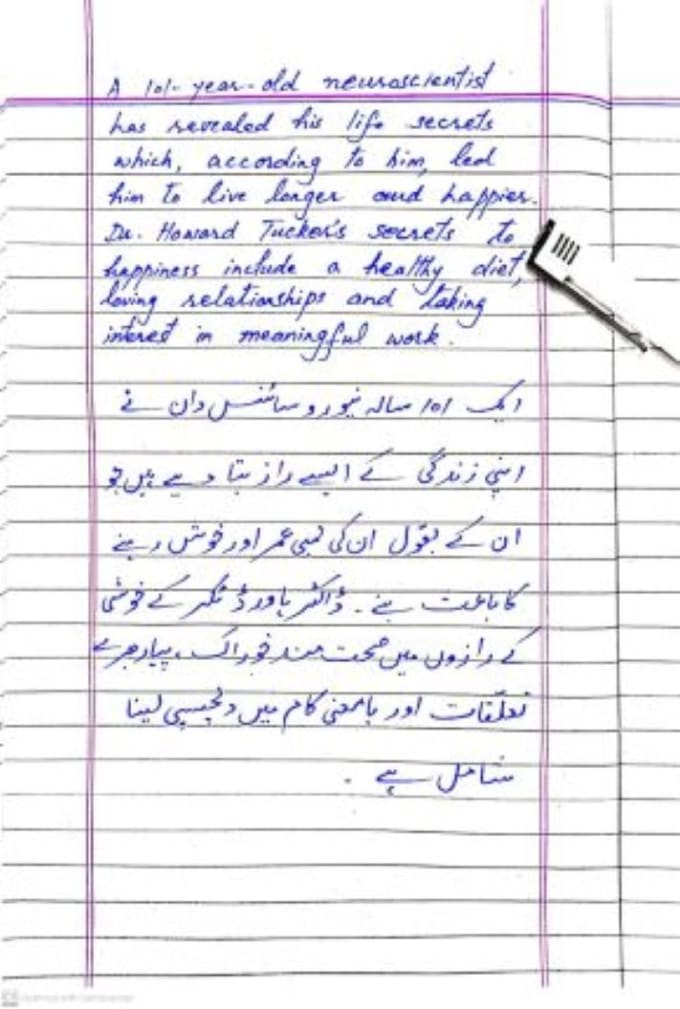 A 101-year-old neuroscientist
has revealed his life secrets
which, according to him, led
him to live longer and happier.
Dr. Howard Tucker's secrets to
happiness include a healthy diet,
loving relationships and taking
interest in meaningful work.
ایک 101 سالہ نیورو سائنس دان نے
اپنی زندگی کے ایسے راز بتا دیے ہیں جو
ان کے بقول ان کی لمبی عمر اور خوش رہنے
کا باعث بنے۔ ڈاکٹر ہاورڈ ٹکر کے خوشی
کے رازوں میں صحت مند خوراک، پیار بھرے
تعلّقات اور بامعنی کام میں دلچسپی لینا
شامل ہے۔
Scanned with CamScanner